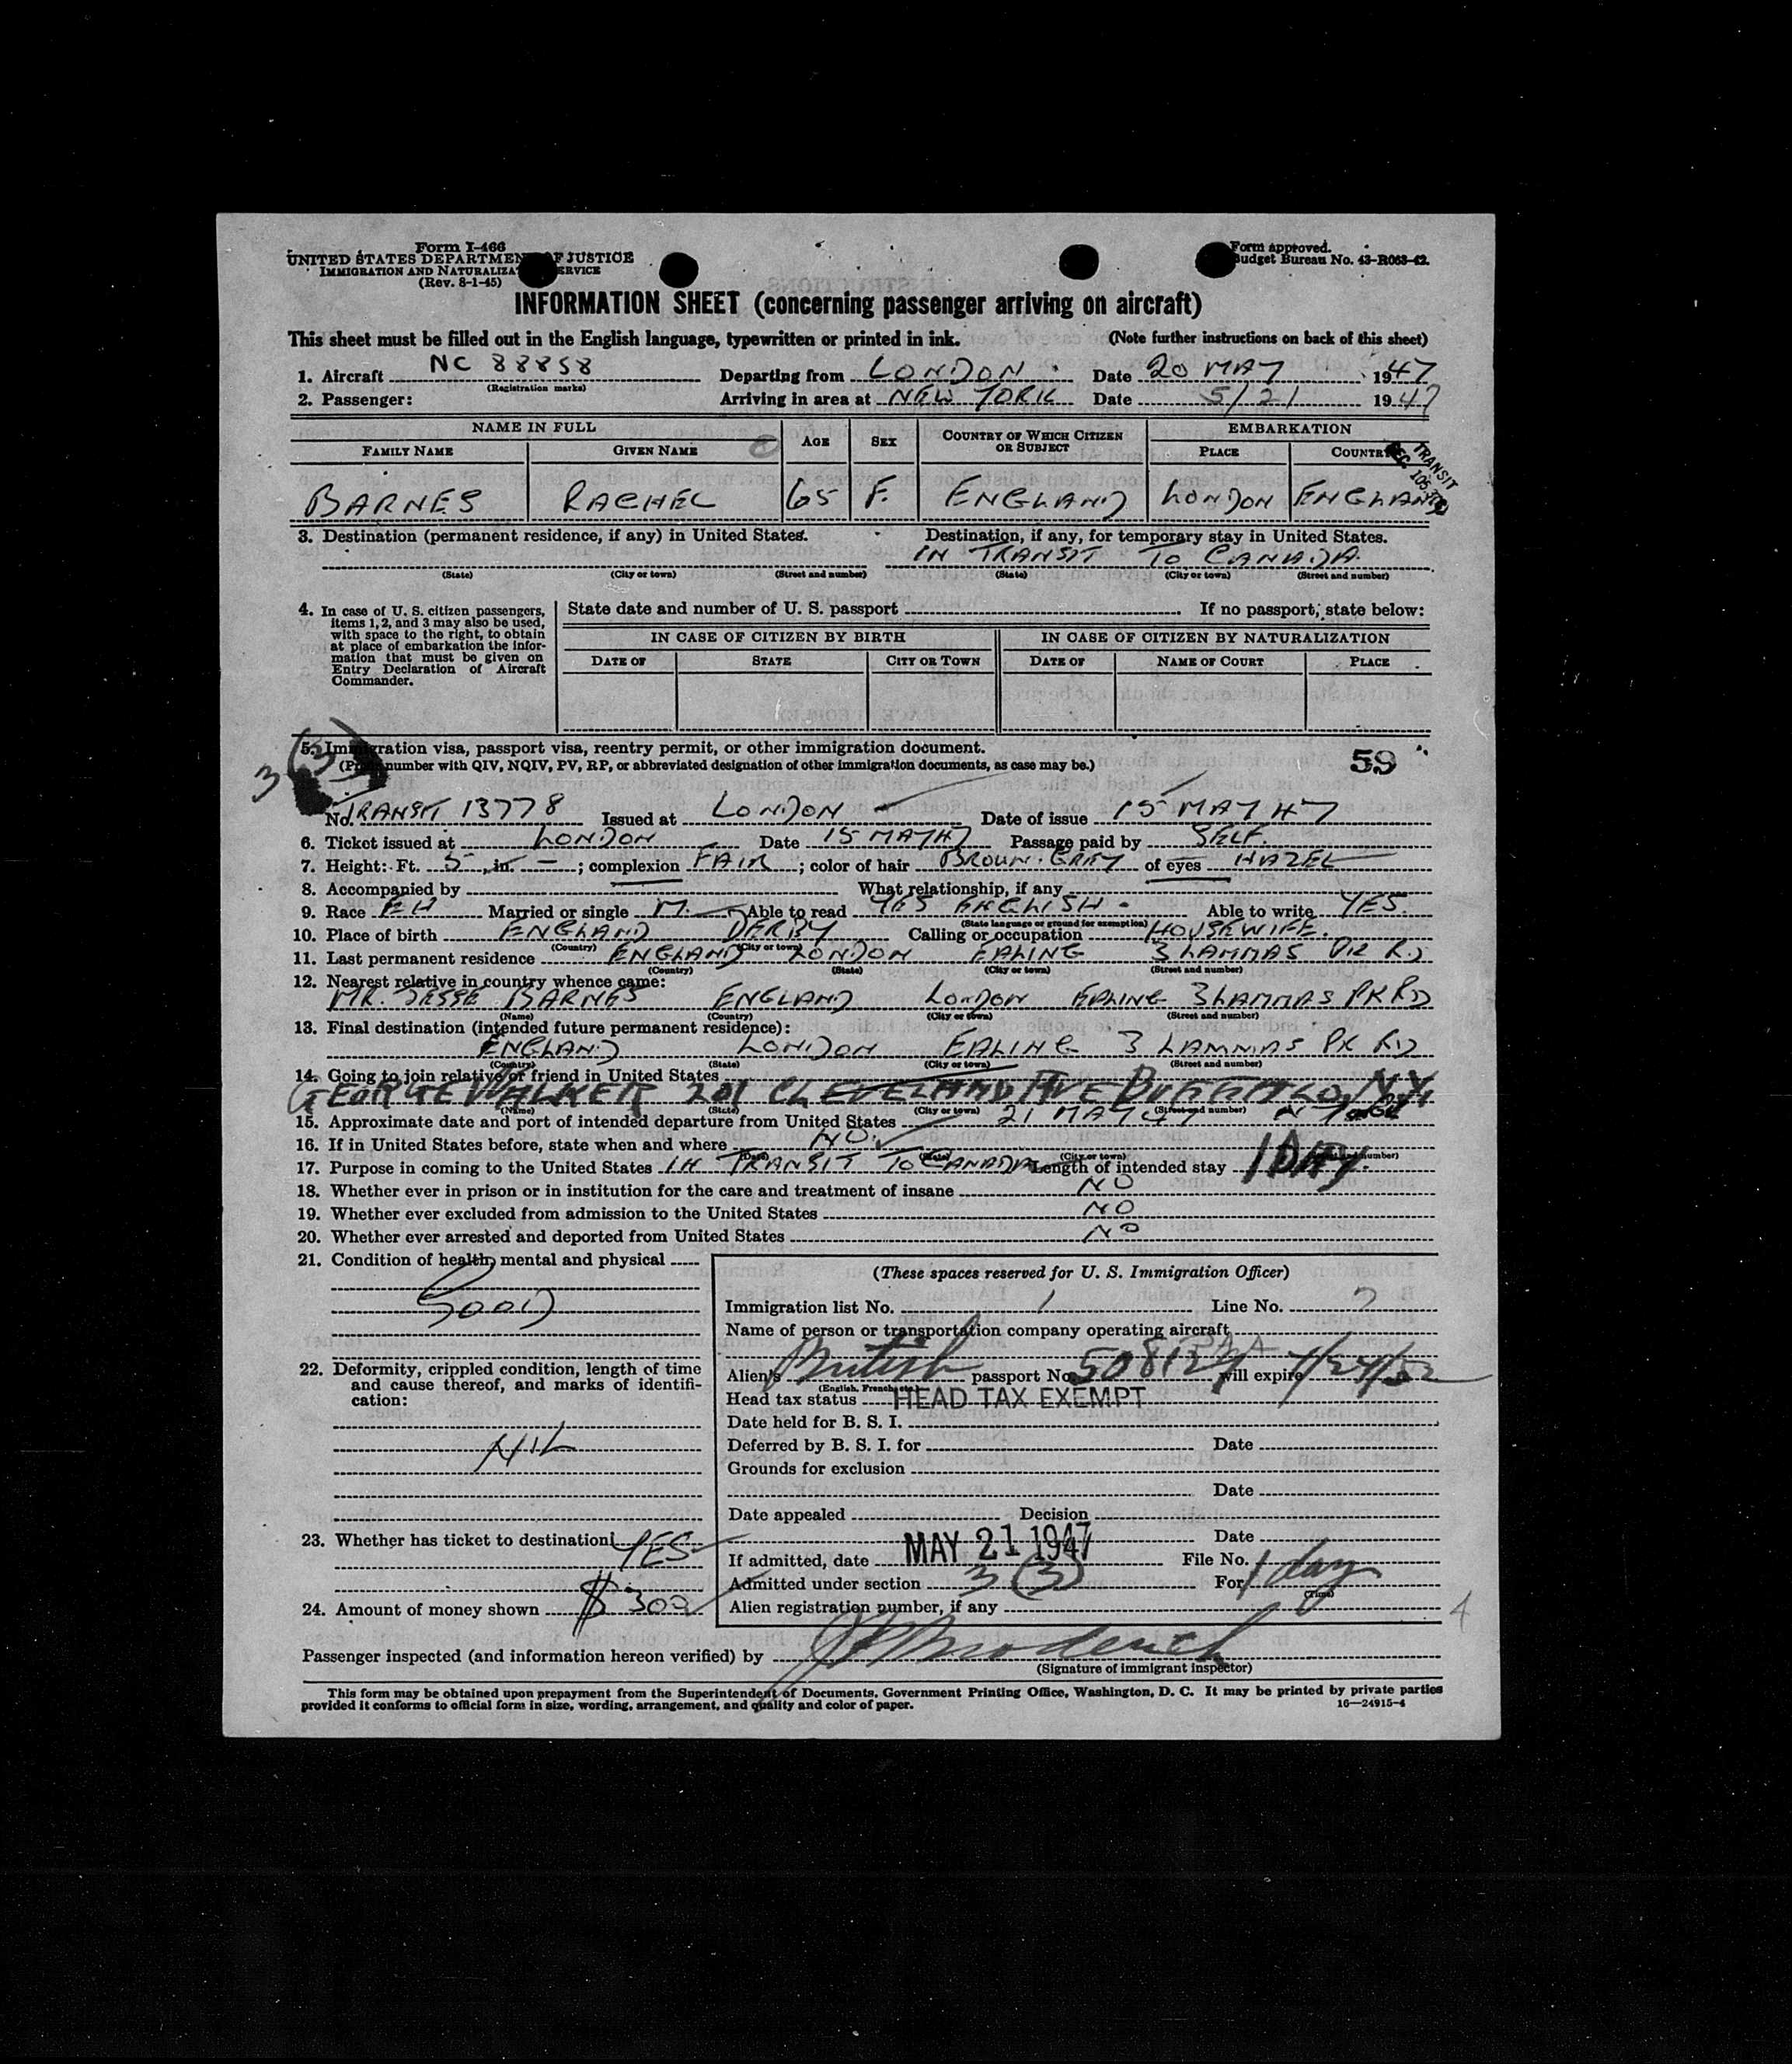 Form I-466
UNITED STATES DEPARTMENT OF JUSTICE
IMMIGRATION AND NATURALIZATION SERVICE
(Rev. 8-1-45)
Form approved.
Budget Bureau No. 43-R063-42.
INFORMATION SHEET (concerning passenger arriving on aircraft)
This sheet must be filled out in the English language, typewritten or printed in ink. (Note further instructions on back of this sheet)
1. Aircraft NC 88858 Departing from LONDON Date 20 MAY 1947
(Registration marks)
2. Passenger: Arriving in area at NEW YORK Date 5/21 1947
NAME IN FULL AGE SEX COUNTRY OF WHICH CITIZEN OR SUBJECT EMBARKATION
FAMILY NAME GIVEN NAME PLACE COUNTRY
TRANSIT
BARNES RACHEL 65 F. ENGLAND LONDON ENGLAND
3. Destination (permanent residence, if any) in United States. Destination, if any, for temporary stay in United States.
IN TRANSIT TO CANADA
(State) (City or town) (Street and number) (State) (City or town) (Street and number)
4. In case of U. S. citizen passengers, items 1, 2, and 3 may also be used, with space to the right, to obtain at place of embarkation the information that must be given on Entry Declaration of Aircraft Commander.
State date and number of U. S. passport If no passport, state below:
IN CASE OF CITIZEN BY BIRTH IN CASE OF CITIZEN BY NATURALIZATION
DATE OF STATE CITY OR TOWN DATE OF NAME OF COURT PLACE
3 (3)
5. Immigration visa, passport visa, reentry permit, or other immigration document. 59
number with QIV, NQIV, PV, RP, or abbreviated designation of other immigration documents, as case may be.)
No. TRANSIT 13778 Issued at LONDON Date of issue 15 MAY 47
6. Ticket issued at LONDON Date 15 MAY 47 Passage paid by SELF.
7. Height: Ft. 5 , in. — ; complexion FAIR ; color of hair BROWN-GREY of eyes HAZEL
8. Accompanied by What relationship, if any
9. Race Married or single M. Able to read YES ENGLISH Able to write YES.
(State language or ground for exemption)
10. Place of birth ENGLAND DERBY Calling or occupation HOUSEWIFE.
(Country) (City or town)
11. Last permanent residence ENGLAND LONDON EALING 3 LAMMAS PK RD
(Country) (State) (City or town) (Street and number)
12. Nearest relative in country whence came:
MR. JESSE BARNES ENGLAND LONDON EALING 3 LAMMAS PK RD
(Name) (Country) (City or town) (Street and number)
13. Final destination (intended future permanent residence):
ENGLAND LONDON EALING 3 LAMMAS PK RD
(Country) (State) (City or town) (Street and number)
14. Going to join relative or friend in United States
GEORGE WALKER 201 CLEVELAND AVE BUFFALO, N.Y.
(Name) (State) (City or town) (Street and number)
15. Approximate date and port of intended departure from United States 21 MAY 47
16. If in United States before, state when and where NO.
(Date) (State) (City or town) (Street and number)
17. Purpose in coming to the United States IN TRANSIT TO CANADA Length of intended stay 1 DAY.
18. Whether ever in prison or in institution for the care and treatment of insane NO
19. Whether ever excluded from admission to the United States NO
20. Whether ever arrested and deported from United States NO
21. Condition of health, mental and physical
GOOD
22. Deformity, crippled condition, length of time and cause thereof, and marks of identification:
NIL
23. Whether has ticket to destination YES
24. Amount of money shown $ 300
(These spaces reserved for U. S. Immigration Officer)
Immigration list No. 1 Line No. 7
Name of person or transportation company operating aircraft
Alien's British passport No. 508124 will expire 4/24/52
(English, French, etc.)
Head tax status HEAD TAX EXEMPT
Date held for B. S. I.
Deferred by B. S. I. for Date
Grounds for exclusion
Date
Date appealed Decision
Date
If admitted, date MAY 21 1947 File No.
Admitted under section 3 (3) For 1 day
(Time)
Alien registration number, if any
4
Passenger inspected (and information hereon verified) by Broderick
(Signature of immigrant inspector)
This form may be obtained upon prepayment from the Superintendent of Documents, Government Printing Office, Washington, D. C. It may be printed by private parties
provided it conforms to official form in size, wording, arrangement, and quality and color of paper. 16—24915-4